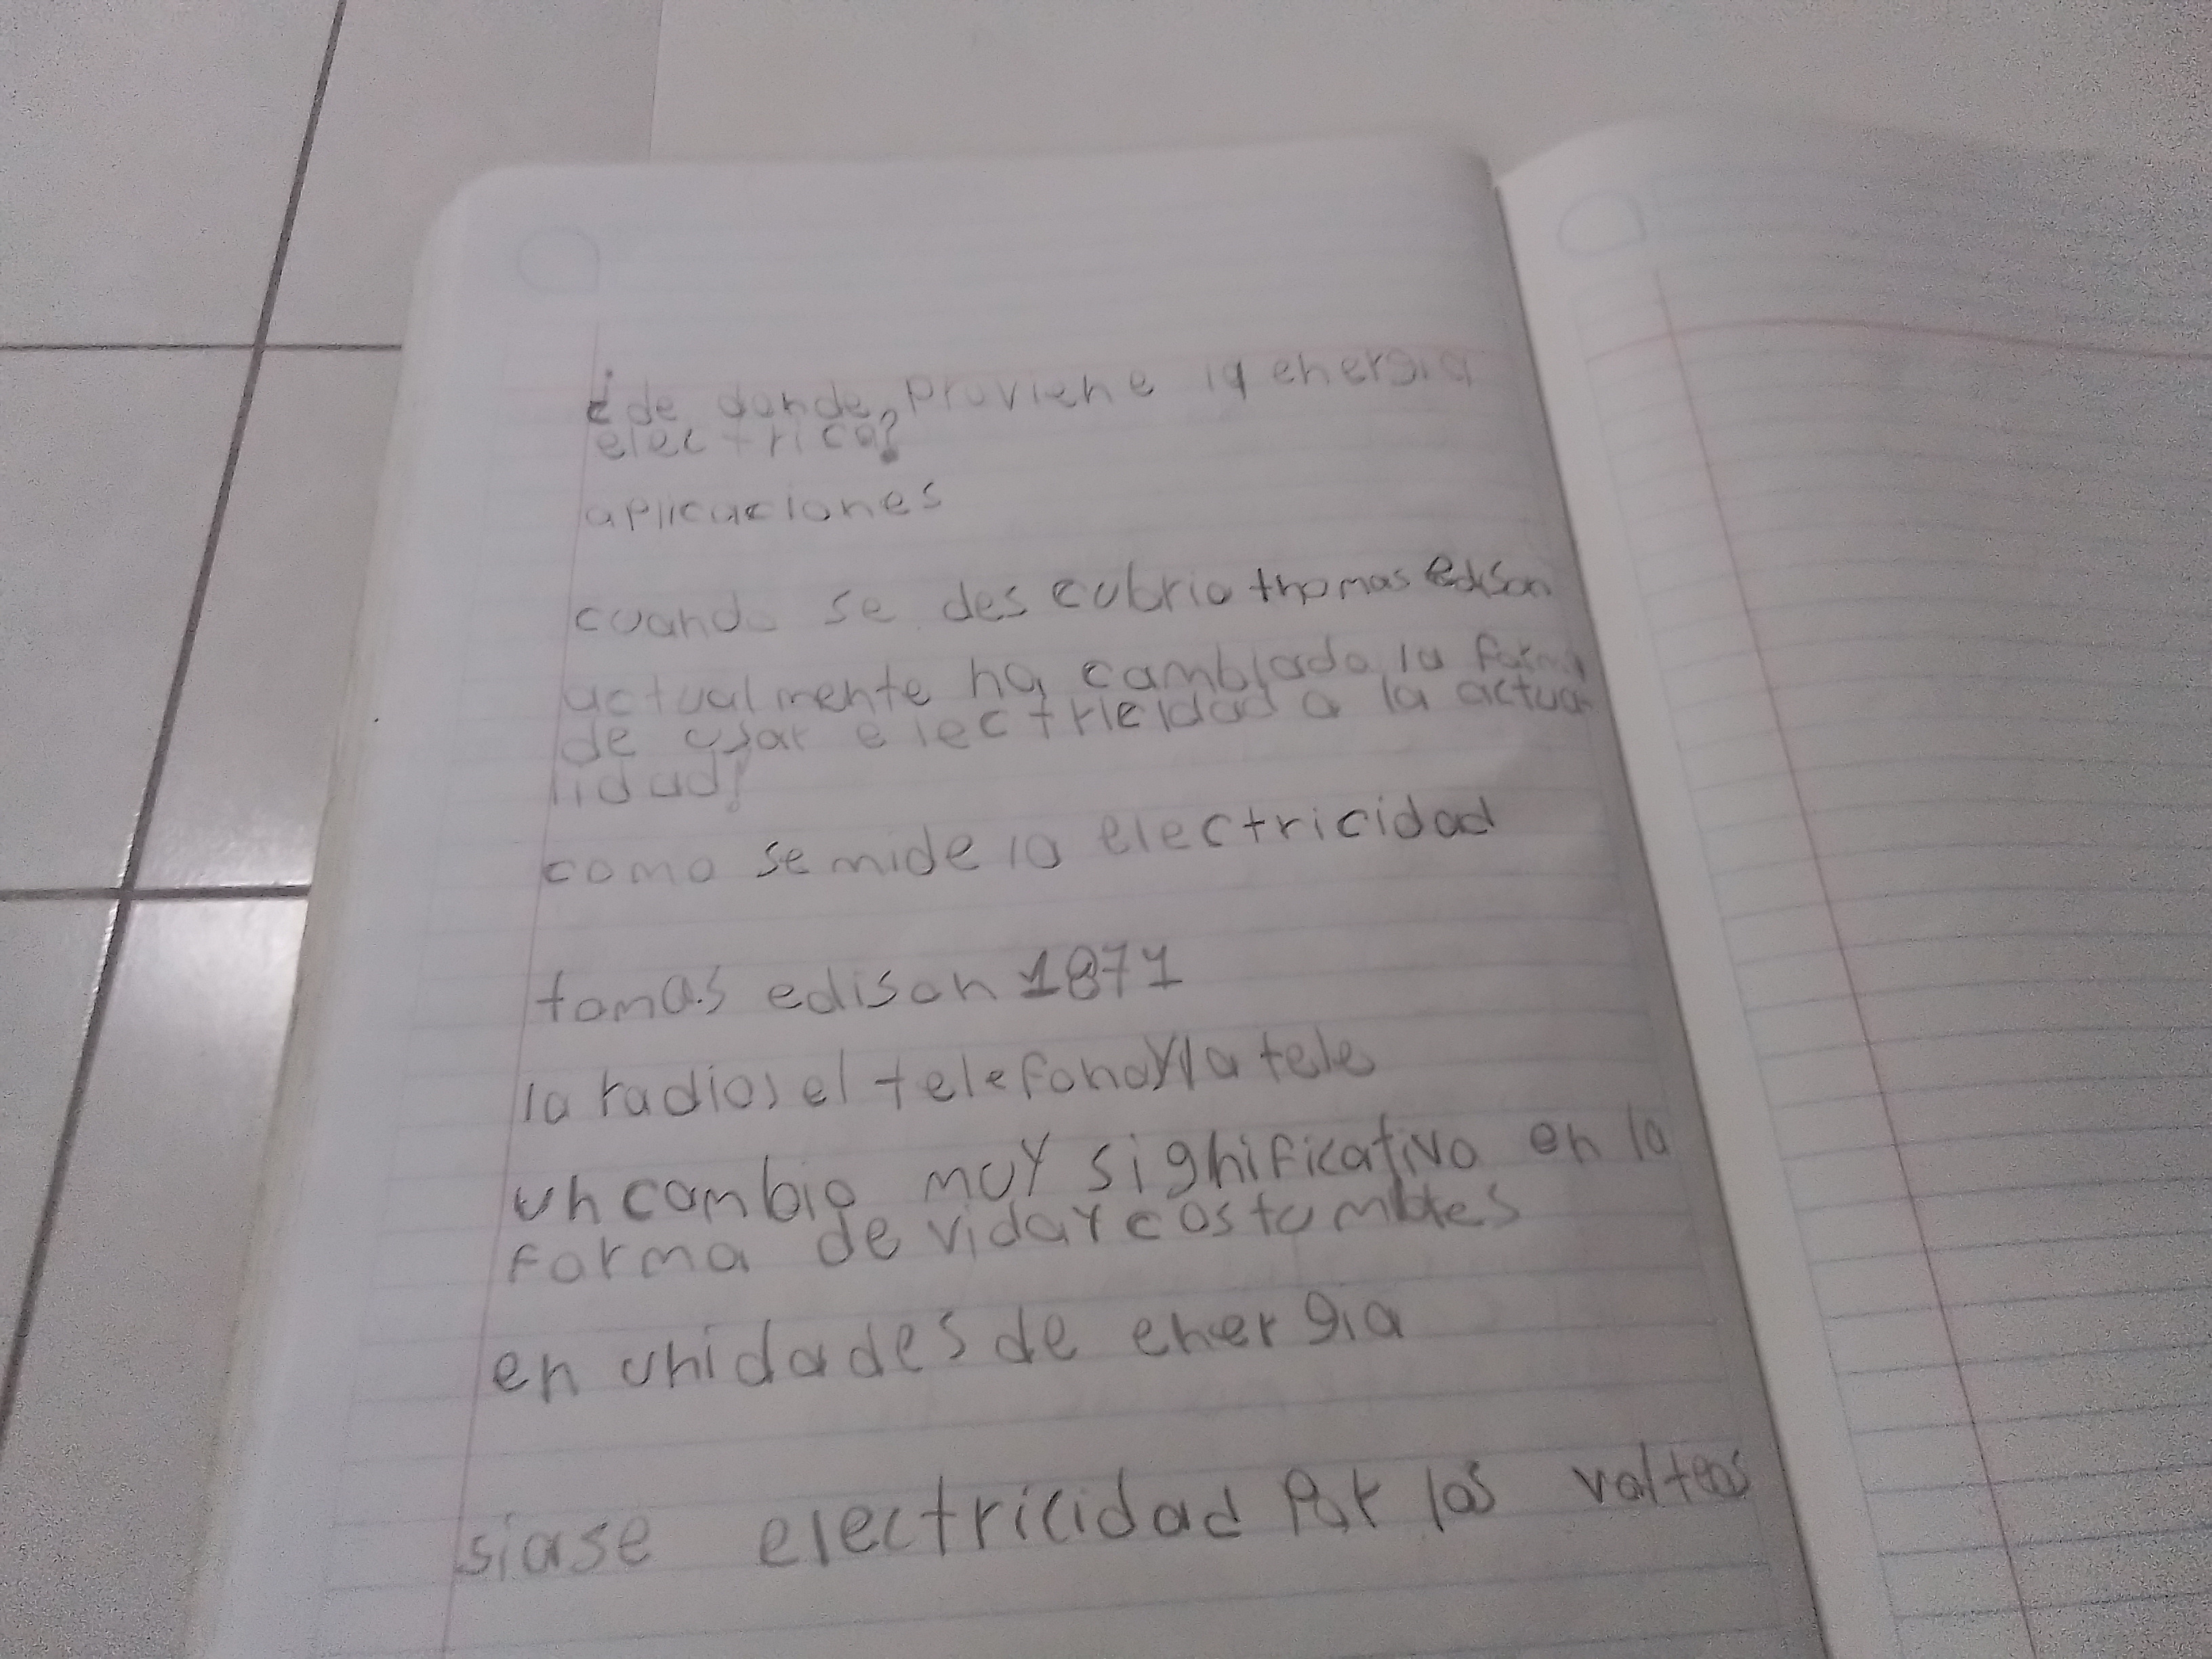 ¿de donde, proviene la energia
electrica?
aplicaciones
cuando se des cubrio thomas edison
actualmente ha cambiado la forma
de usar electricidad a la actua
lidad?
como se mide la electricidad
tomas edison 1871
la radio, el telefono y la tele
un cambio muy significativo en la
forma de vida y costumbres
en unidades de energia
electricidad por los